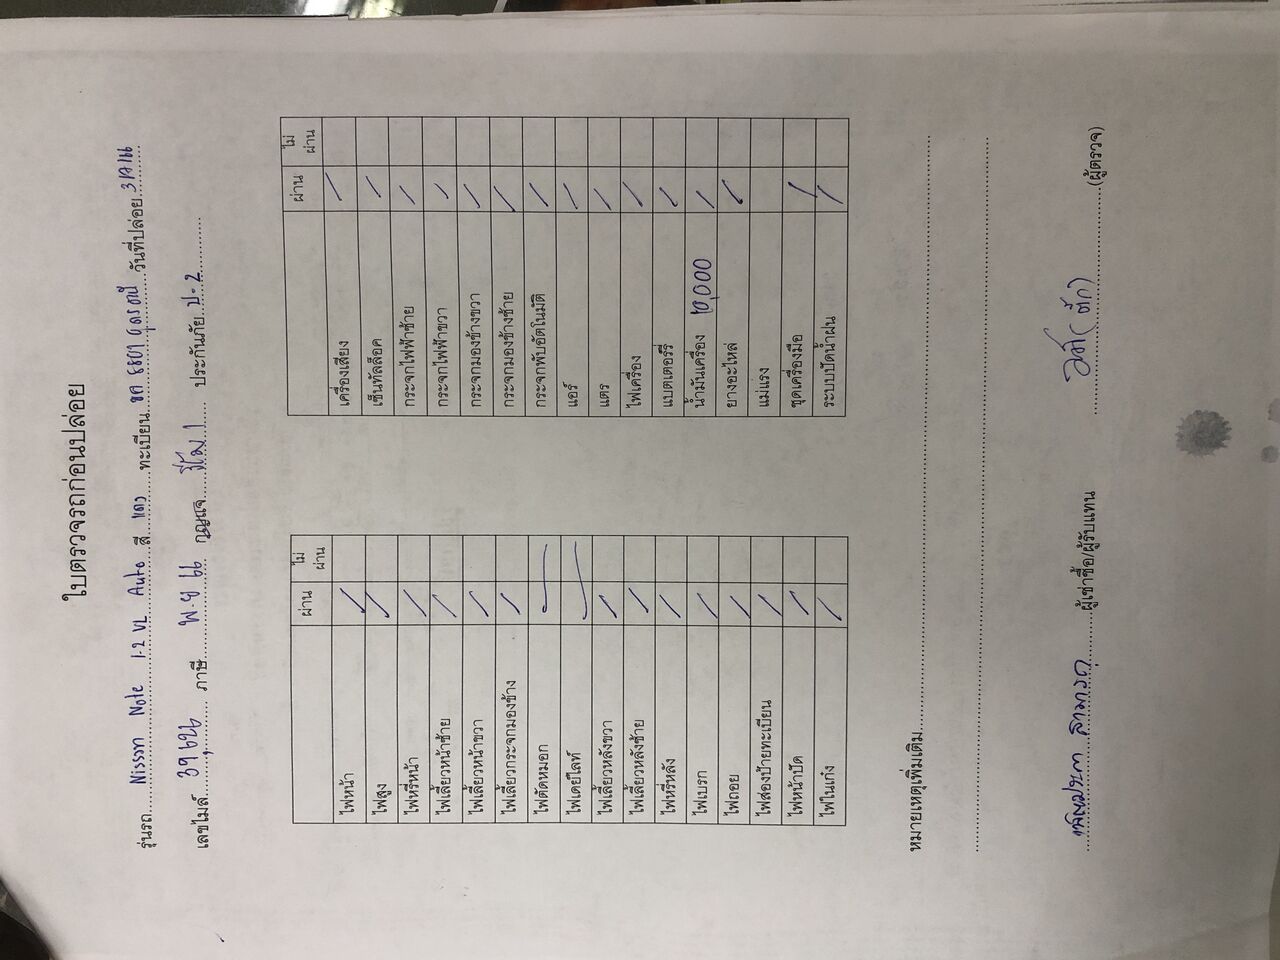 ใบตรวจรถก่อนปล่อย
รุ่นรถ Nissan Note 1.2 VL Auto สี แดง ทะเบียน ขค 8801 อุดรธานี วันที่ปล่อย
เลขไมล์ ภาษี พ.ย 66 กุญแจ รีโม 1 ประกันภัย ป.2
ผ่าน ไม่ผ่าน
ไฟหน้า /
ไฟสูง /
ไฟหรี่หน้า /
ไฟเลี้ยวหน้าซ้าย /
ไฟเลี้ยวหน้าขวา /
ไฟเลี้ยวกระจกมองข้าง /
ไฟตัดหมอก —
ไฟเดย์ไลท์ —
ไฟเลี้ยวหลังขวา /
ไฟเลี้ยวหลังซ้าย /
ไฟหรี่หลัง /
ไฟเบรก /
ไฟถอย /
ไฟส่องป้ายทะเบียน /
ไฟหน้าปัด /
ไฟในเก๋ง /
ผ่าน ไม่ผ่าน
เครื่องเสียง /
เซ็นทัลล็อค /
กระจกไฟฟ้าซ้าย /
กระจกไฟฟ้าขวา /
กระจกมองข้างขวา /
กระจกมองข้างซ้าย /
กระจกพับอัตโนมัติ /
แอร์ /
แตร /
ไฟเครื่อง /
แบตเตอรรี่ /
น้ำมันเครื่อง /
ยางอะไหล่ /
แม่แรง
ชุดเครื่องมือ /
ระบบปัดน้ำฝน /
หมายเหตุเพิ่มเติม
ผู้เช่าซื้อ/ผู้รับแทน (ผู้ตรวจ)